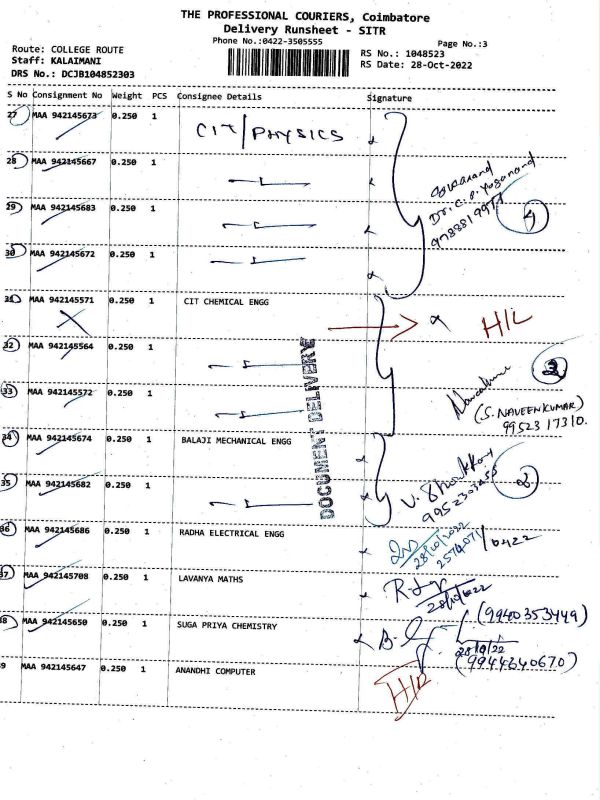 THE PROFESSIONAL COURIERS, Coimbatore
Delivery Runsheet - SITR
Phone No.:0422-3505555
Page No.:3
Route: COLLEGE ROUTE
Staff: KALAIMANI
DRS No.: DCJB104852303
RS No.: 1048523
RS Date: 28-Oct-2022
S No Consignment No Weight PCS Consignee Details Signature
27 MAA 942145673 0.250 1 CIT/PHYSICS
28 MAA 942145667 0.250 1
29 MAA 942145683 0.250 1
30 MAA 942145672 0.250 1
Dr. C. P. Yoganand
9788819911
4
31 MAA 942145571 0.250 1 CIT CHEMICAL ENGG H/L
32 MAA 942145564 0.250 1
33 MAA 942145572 0.250 1
(S. NAVEENKUMAR)
99523 17310.
34 MAA 942145674 0.250 1 BALAJI MECHANICAL ENGG
35 MAA 942145682 0.250 1
2
DOCUMENT DELIVERY
36 MAA 942145686 0.250 1 RADHA ELECTRICAL ENGG
28/10/2022
37 MAA 942145708 0.250 1 LAVANYA MATHS
28/10/2022
38 MAA 942145650 0.250 1 SUGA PRIYA CHEMISTRY
(9940353449)
28/10/22
(9944640670)
9 MAA 942145647 0.250 1 ANANDHI COMPUTER H/L